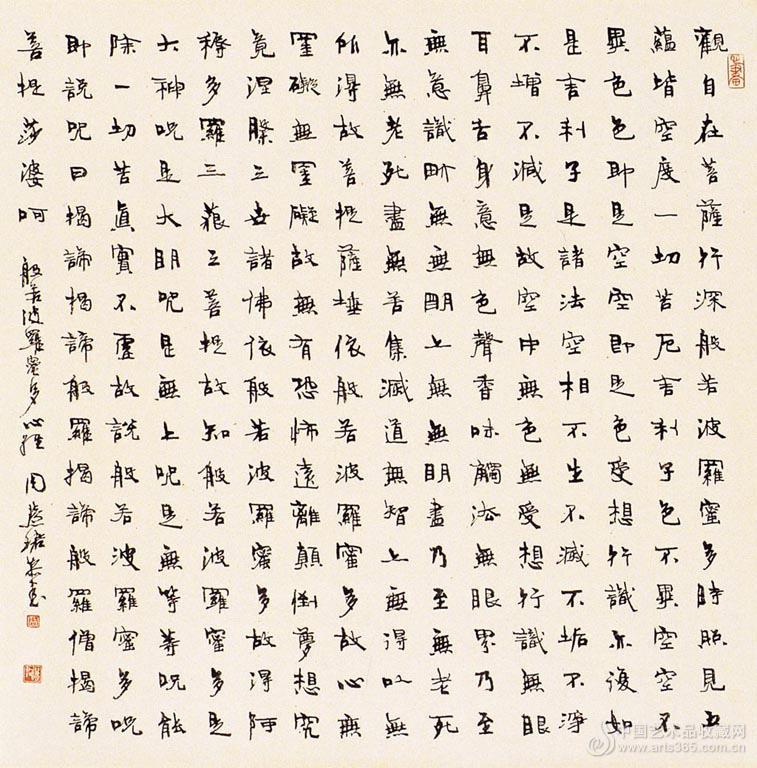 觀自在菩薩行深般若波羅蜜多時照見五
蘊皆空度一切苦厄舍利子色不異空空不
異色色即是空空即是色受想行識亦復如
是舍利子是諸法空相不生不滅不垢不淨
不增不減是故空中無色無受想行識無眼
耳鼻舌身意無色聲香味觸法無眼界乃至
無意識界無無明亦無無明盡乃至無老死
亦無老死盡無苦集滅道無智亦無得以無
所得故菩提薩埵依般若波羅蜜多故心無
罣礙無罣礙故無有恐怖遠離顛倒夢想究
竟涅槃三世諸佛依般若波羅蜜多故得阿
耨多羅三藐三菩提故知般若波羅蜜多是
大神咒是大明咒是無上咒是無等等咒能
除一切苦真實不虛故說般若波羅蜜多咒
即說咒曰揭諦揭諦般羅揭諦般羅僧揭諦
菩提莎婆呵 般若波羅蜜多心經 周慧珺恭書
中国艺术品收藏网
www.arts365.com.cn